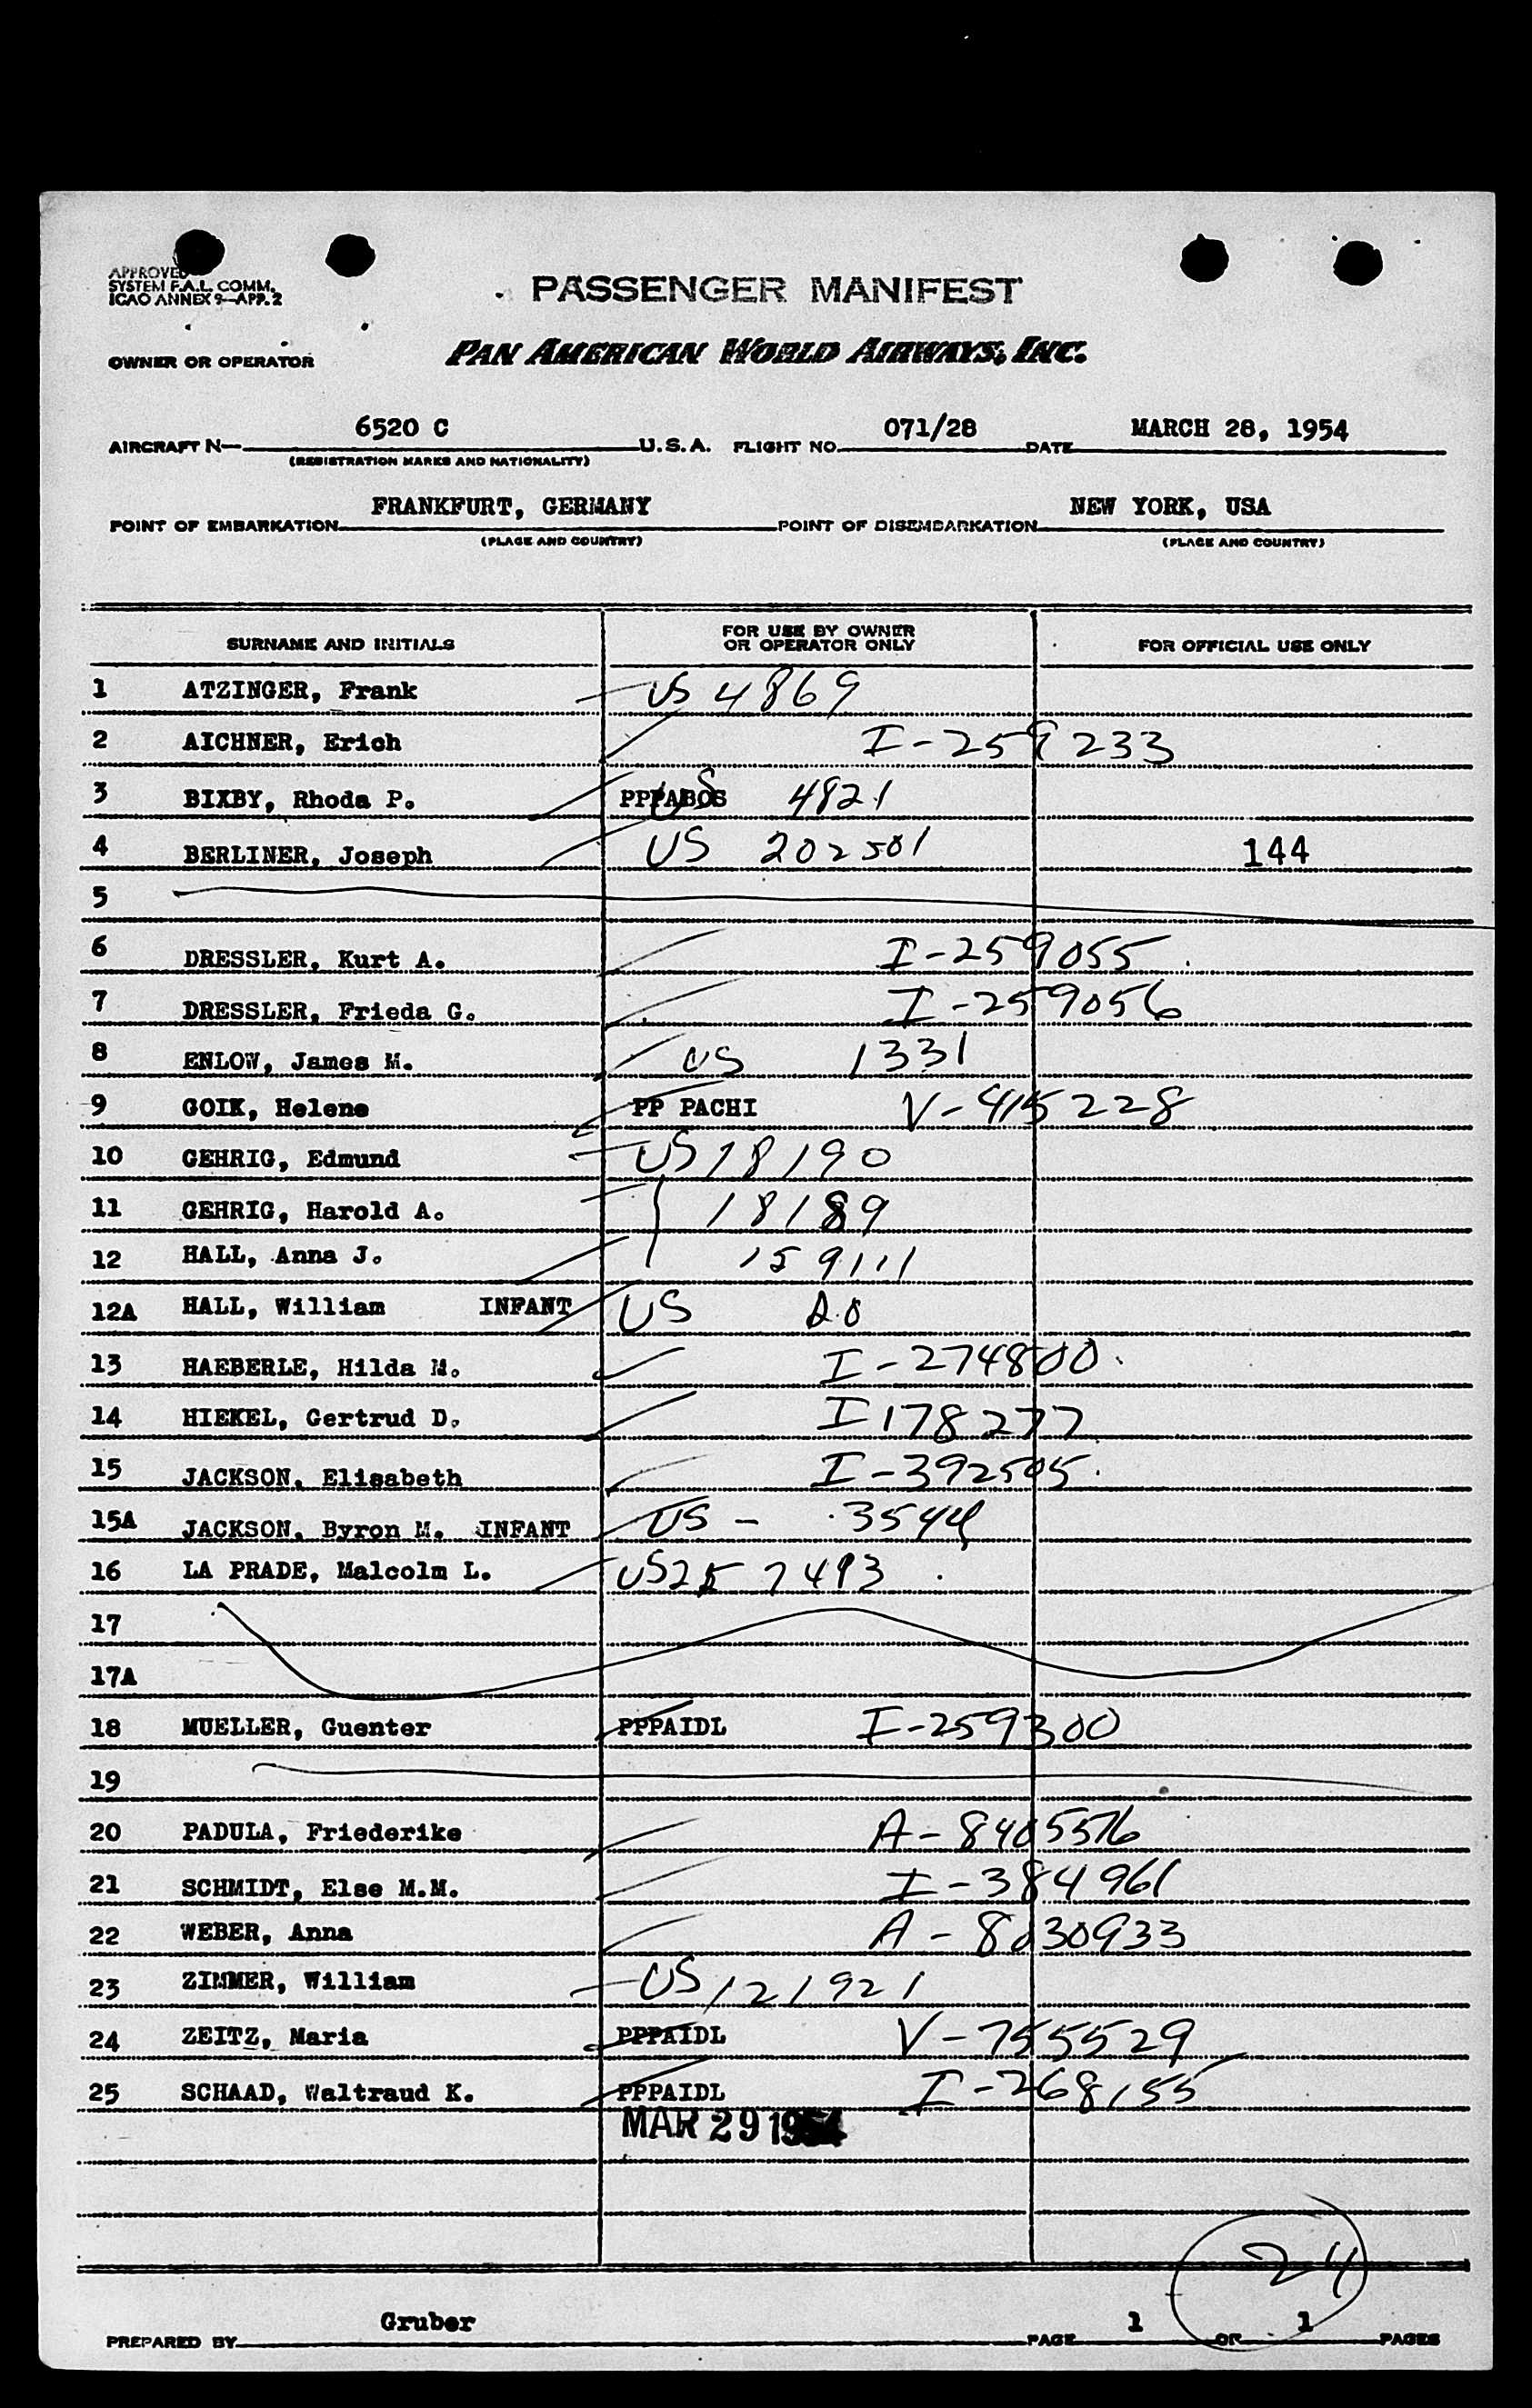 APPROVED
SYSTEM F.A.L. COMM.
ICAO ANNEX 9—APP. 2
PASSENGER MANIFEST
OWNER OR OPERATOR PAN AMERICAN WORLD AIRWAYS, INC.
AIRCRAFT N— 6520 C U.S.A. FLIGHT NO. 071/28 DATE MARCH 28, 1954
(REGISTRATION MARKS AND NATIONALITY)
POINT OF EMBARKATION FRANKFURT, GERMANY POINT OF DISEMBARKATION NEW YORK, USA
(PLACE AND COUNTRY) (PLACE AND COUNTRY)
SURNAME AND INITIALS FOR USE BY OWNER OR OPERATOR ONLY FOR OFFICIAL USE ONLY
1 ATZINGER, Frank US 4869
2 AICHNER, Erich I-259233
3 BIXBY, Rhoda P. PPPABOS US 4821
4 BERLINER, Joseph US 202501 144
5
6 DRESSLER, Kurt A. I-259055
7 DRESSLER, Frieda G. I-259056
8 ENLOW, James M. US 1331
9 GOIK, Helene PP PACHI V-415228
10 GEHRIG, Edmund US 18190
11 GEHRIG, Harold A. 18189
12 HALL, Anna J. 159111
12A HALL, William INFANT US
13 HAEBERLE, Hilda M. I-274800
14 HIEKEL, Gertrud D. I 178277
15 JACKSON, Elisabeth I-392505
15A JACKSON, Byron M. INFANT US - 3544
16 LA PRADE, Malcolm L. US
17
17A
18 MUELLER, Guenter PPPAIDL I-259300
19
20 PADULA, Friederike A-8405576
21 SCHMIDT, Else M.M. I-384961
22 WEBER, Anna A-8030933
23 ZIMMER, William US 121921
24 ZEITZ, Maria PPPAIDL V-755529
25 SCHAAD, Waltraud K. PPPAIDL I-268155
MAR 29 1954
24
PREPARED BY Gruber PAGE 1 OF 1 PAGES